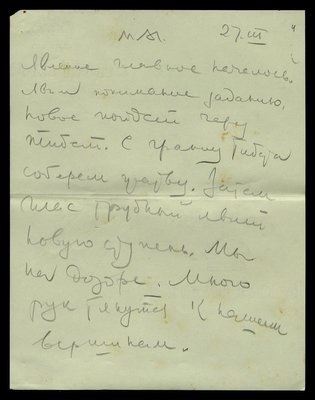 М.М. 27.III
Явление главное началось.
Явим понимание заданию,
новое пойдет через
Тибет. С границ Тибета
соберем жатву. Затем
глас трубный явит
новую ступень. Мы
на дозоре. Много
рук тянутся к нашим
вершинам.